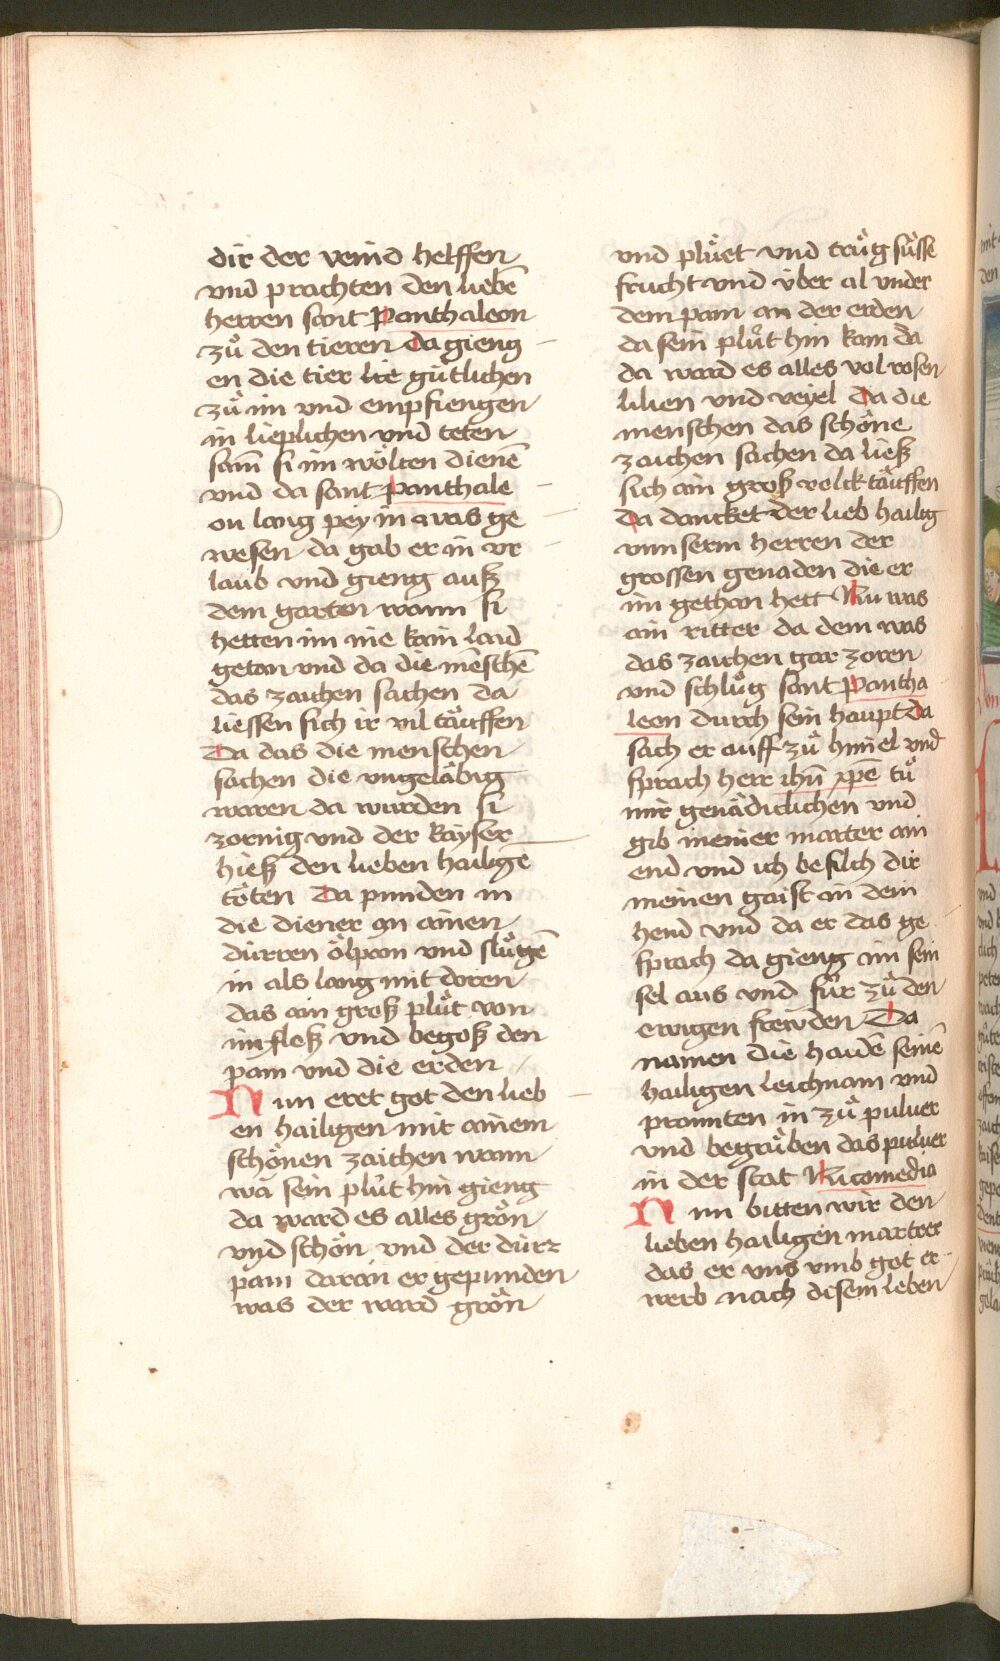 dir der veind helffen
vnd prachten den liebē
herren sant Panthaleon
zů den tieren Da gieng
en die tier lie gütlichen
zů im vnd empfiengen
in lieplichen vnd teten
sam̄ si im wölten dienē
vnd da sant Panthale
on lang pey in was ge
wesen da gab er in vr
laub vnd gieng auß
dem garten wann si
hetten im nie kain laid
getan vnd da die mēschē
das zaichen sachen da
liessen sich ir vil täuffen
Da das die menschen
sachen die vngeläbig
waren da wurden si
zornig vnd der kayser
hieß den lieben hailigē
töten Da punden in
die diener an ainen
dürren ölpam vnd slůgē
in als lang mit doren
das ain groß plůt von
im floß vnd begoß den
pam vnd die erden
Nun eret got den lieb
en hailigen mit ainem
schönen zaichen wann
wa sein plůt hin gieng
da ward es alles grön
vnd schön vnd der dürr
pam daran er gepunden
was der ward grön
vnd plüet vnd trůg süsse
frucht vnd über al vnder
dem pam an der erden
da sein plůt hin kam da
da ward es alles vol rosen
lilien vnd veyel Da die
menschen das schöne
zaichen sachen da ließ
sich ain groß volck täuffen
Da dancket der lieb hailig
vnnserm herren der
grossen genaden die er
im gethan hett Nu was
ain ritter da dem was
das zaichen gar zoren
vnd schlůg sant Pantha
leon durch sein haupt Da
sach er auff zů himel vnd
sprach herr ihū xpē tů
mir genädiclichen vnd
gib meiner marter ain
end vnd ich befilch dir
meinen gaist in dein
hend vnd da er das ge
sprach da gieng im sein
sel aus vnd für zů den
ewigen frewden Da
namen die haidē seinē
hailigen leichnam vnd
prannten in zů puluer
vnd begrůben das puluer
in der stat Nicomedia
Nun bitten wir den
lieben hailigen martrer
das er vns vmb got er
werb nach disem leben